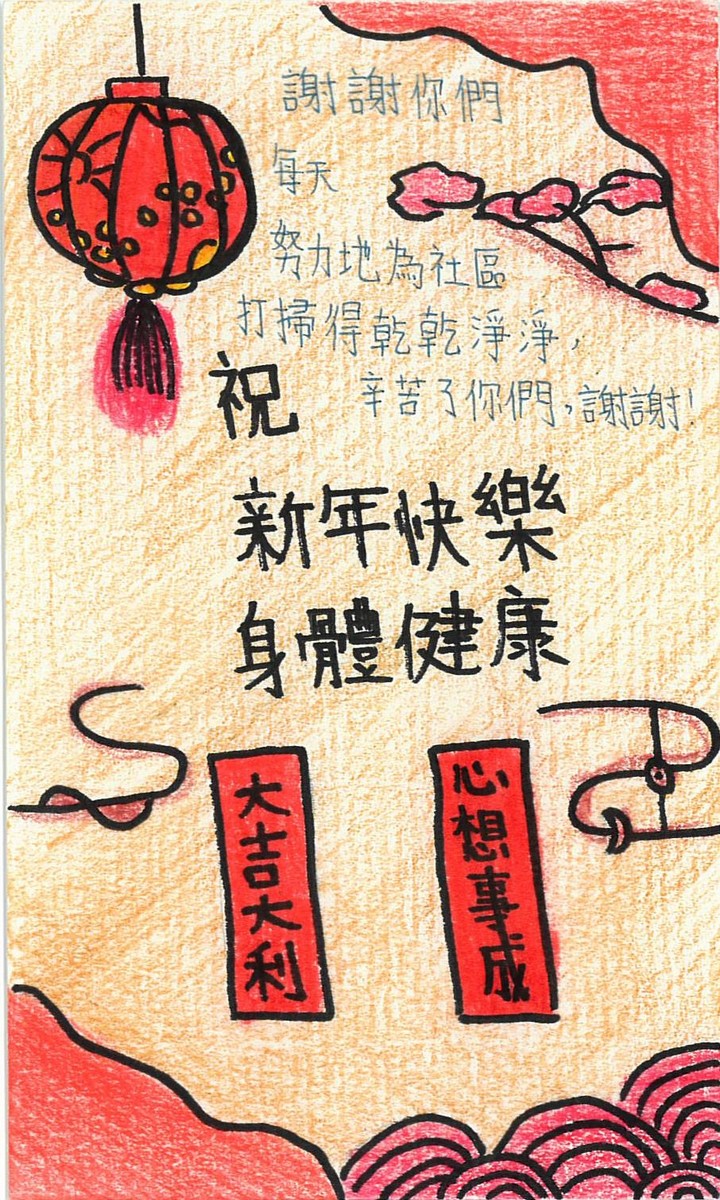 謝謝你們
每天
努力地為社區
打掃得乾乾淨淨，
辛苦了你們，謝謝！
祝
新年快樂
身體健康
大吉大利
心想事成